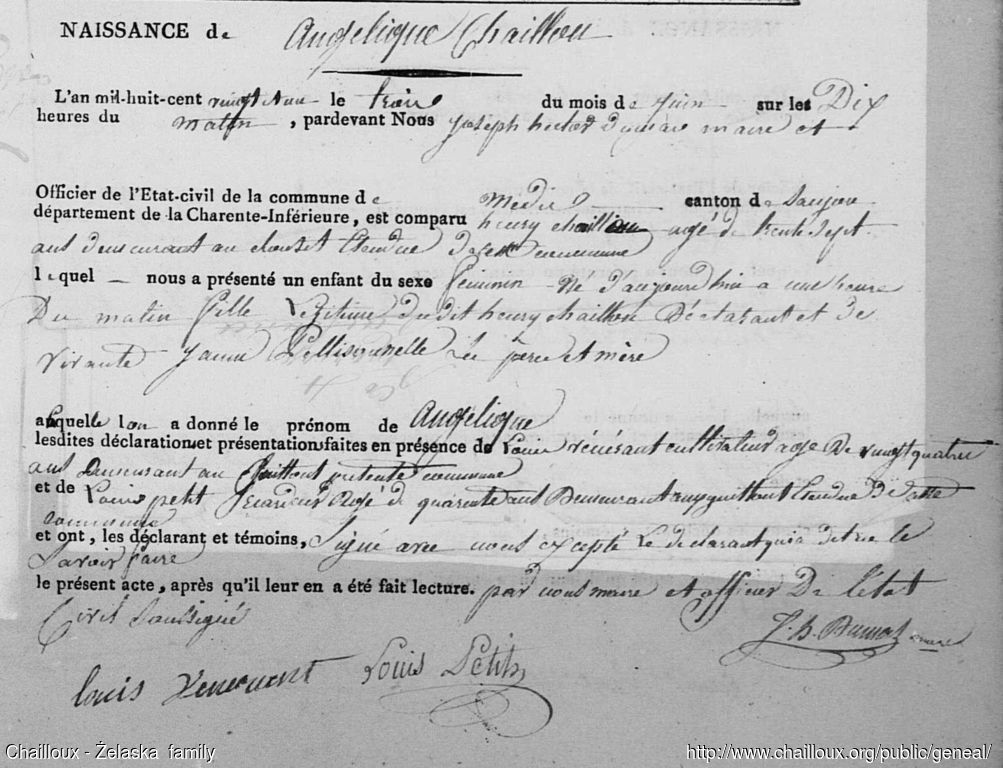 NAISSANCE de Angelique Chaillou
L'an mil-huit-cent vingt et un le trois du mois de juin sur les Dix
heures du matin, pardevant Nous Joseph hector maire et
Officier de l'Etat-civil de la commune de Médis canton de Saujon
département de la Charente-Inférieure, est comparu henry chaillou agé de trente sept
ans demeurant au Etendue de commune
lequel nous a présenté un enfant du sexe feminin né d'aujourd'hui a une heure
Du matin fille Legitime dudit henry chaillou Déclarant et de
vivante Janne Pellisonnelle les pere et mère
a laquelle lon a donné le prénom de Angelique
lesdites déclaration et présentation faites en présence de Louis vénérant cultivateur age De vingt quatre
ans Demeurant au commune
et de Louis petit agé de quarante ans Demeurant Etendue De cette
commune
et ont, les déclarant et témoins, signé avec nous excepté Le declarant qui a dit ne le
Savoir faire
le présent acte, après qu'il leur en a été fait lecture. par nous maire et officier De l'état
Civil Soussigné
J. h. maire
Louis Louis Petit
Chailloux - Żelaska family http://www.chailloux.org/public/geneal/